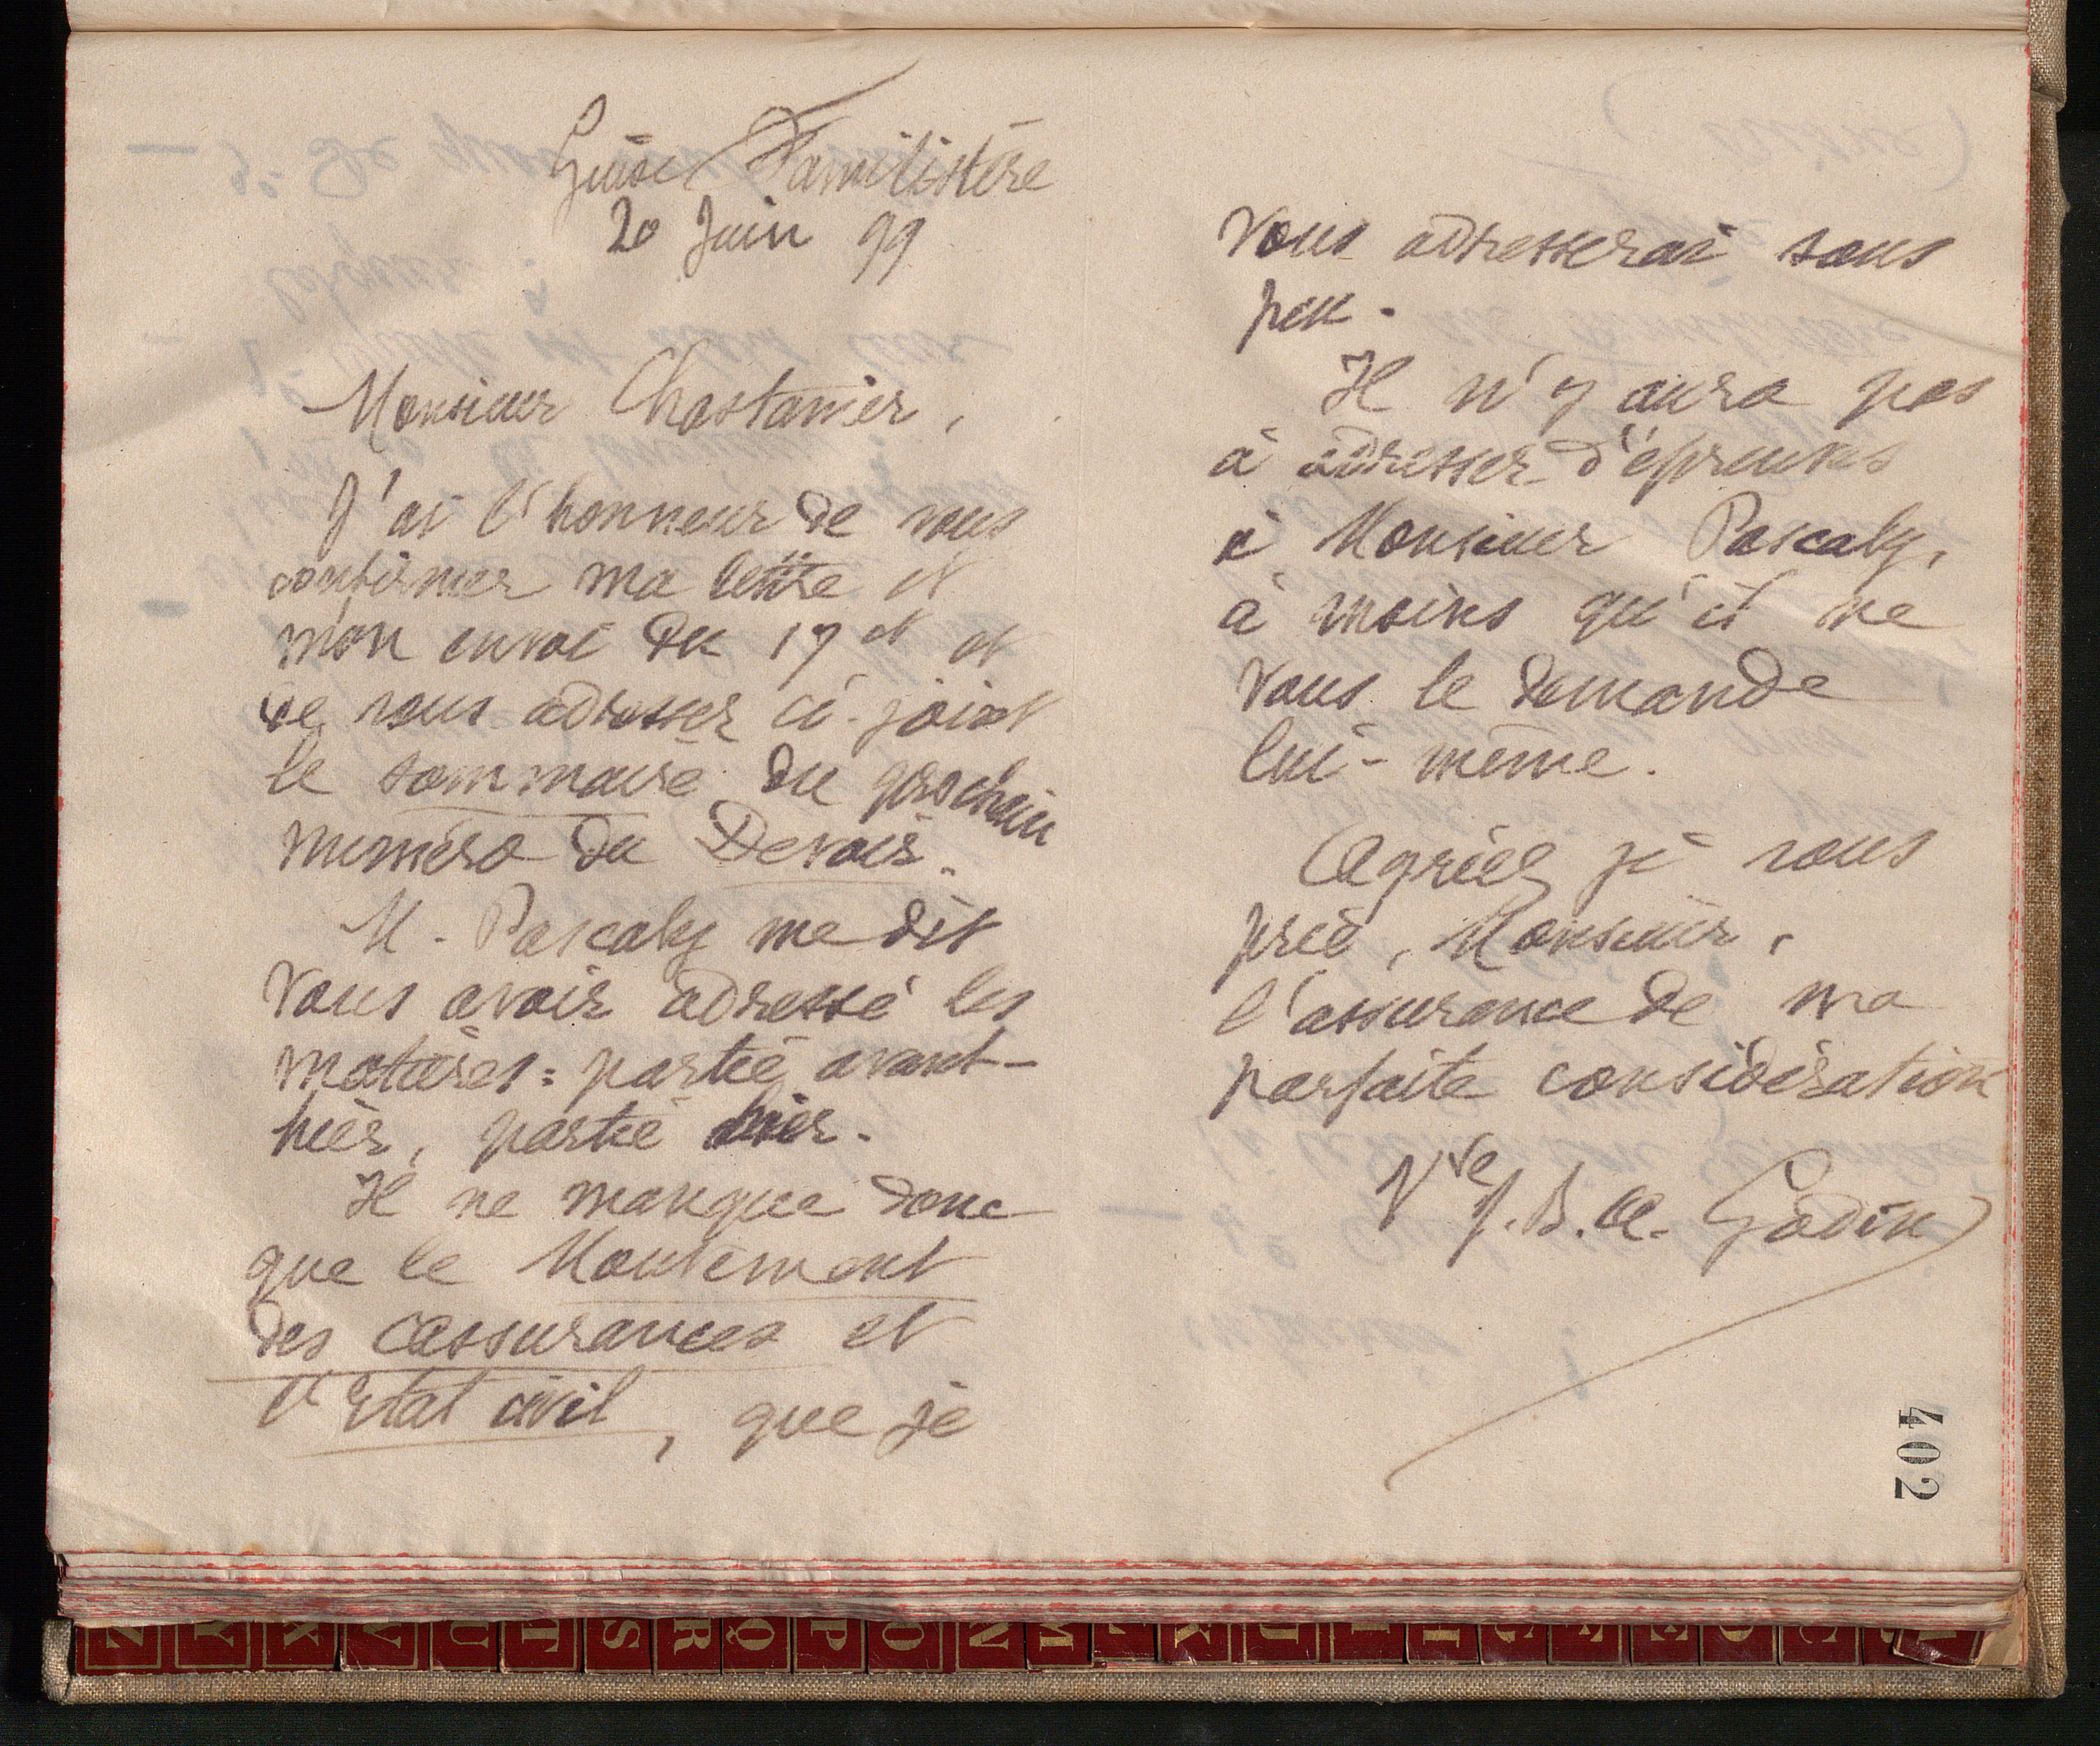 Guise Familistère
20 Juin 99
Monsieur Chastanier,
J'ai l'honneur de vous
confirmer ma lettre et
mon envoi du 17 ct et
de vous adresser ci-joint
le sommaire du prochain
numéro du Devoir.
M. Pascaly me dit
vous avoir adressé les
matières : partie avant-
hier, partie hier.
Il ne manque donc
que le Mouvement
des assurances et
l'Etat civil, que je
vous adresserai sous
peu.
Il n'y aura pas
à adresser d'épreuves
à Monsieur Pascaly,
à moins qu'il ne
vous le demande
lui-même.
Agréez je vous
prie, Monsieur,
l'assurance de ma
parfaite considération
Vve J. B. A. Godin
402
Z Y X V U T S R Q P O N M L K J I H G F E D C B